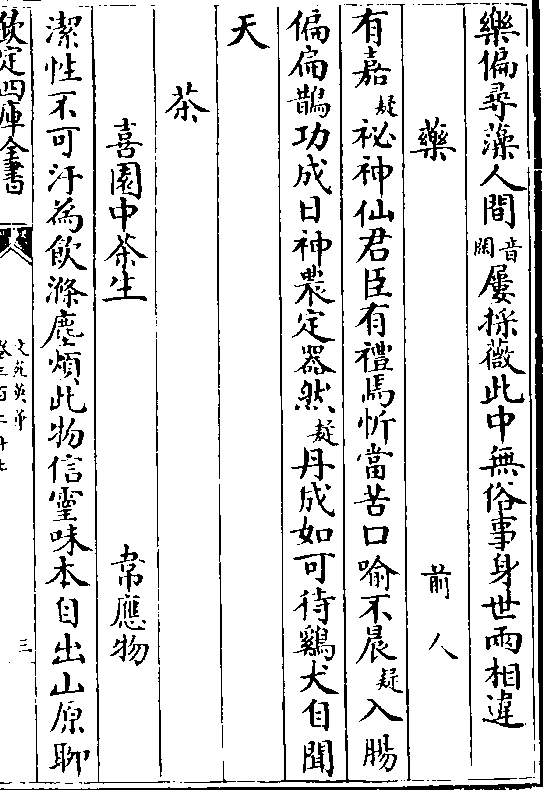 樂偏尋藻人間音闊屢採薇此中無俗事身世兩相違
藥 前人
有嘉疑祕神仙君臣有禮焉忻當苦口喻不晨疑入腸
偏扁鵲功成日神農定器然疑丹成如可待鷄犬自聞
天
茶
喜園中茶生 韋應物
潔性不可汙為飲滌塵煩此物信靈味本自出山原聊
欽定四庫全書
文苑英華
卷三百二十七
三